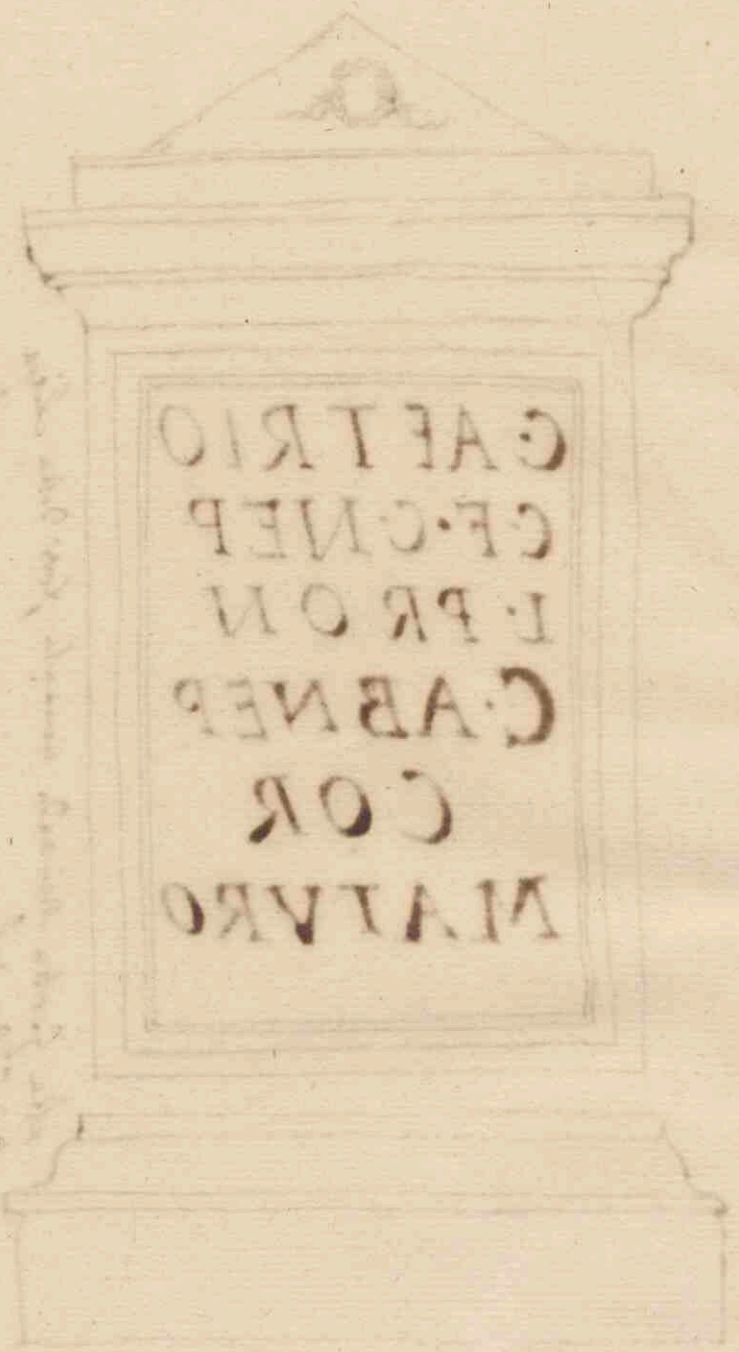 C·AETRIO
C·F·C·NEP
L·PRON
C·ABNEP
COR
MATVRO